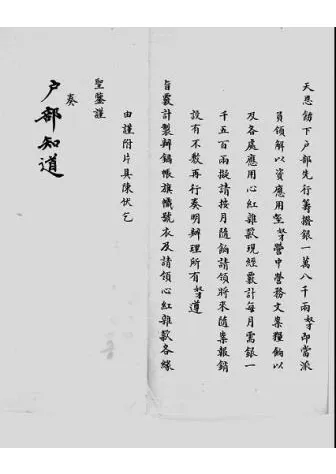 天恩飭下户部先行籌撥銀一萬八千兩奴才即當派
員領解以資應用至奴才營中營務文案糧餉以
及各處應用心紅雜款現經覈計每月需銀一
千五百兩擬請按月隨餉請領將來隨案報銷
設有不敷再行奏明辦理所有奴才遵
旨覈計製辦鍋帳旗幟號衣及請領心紅雜款各緣
由謹附片具陳伏乞
聖鑒謹
奏
户部知道